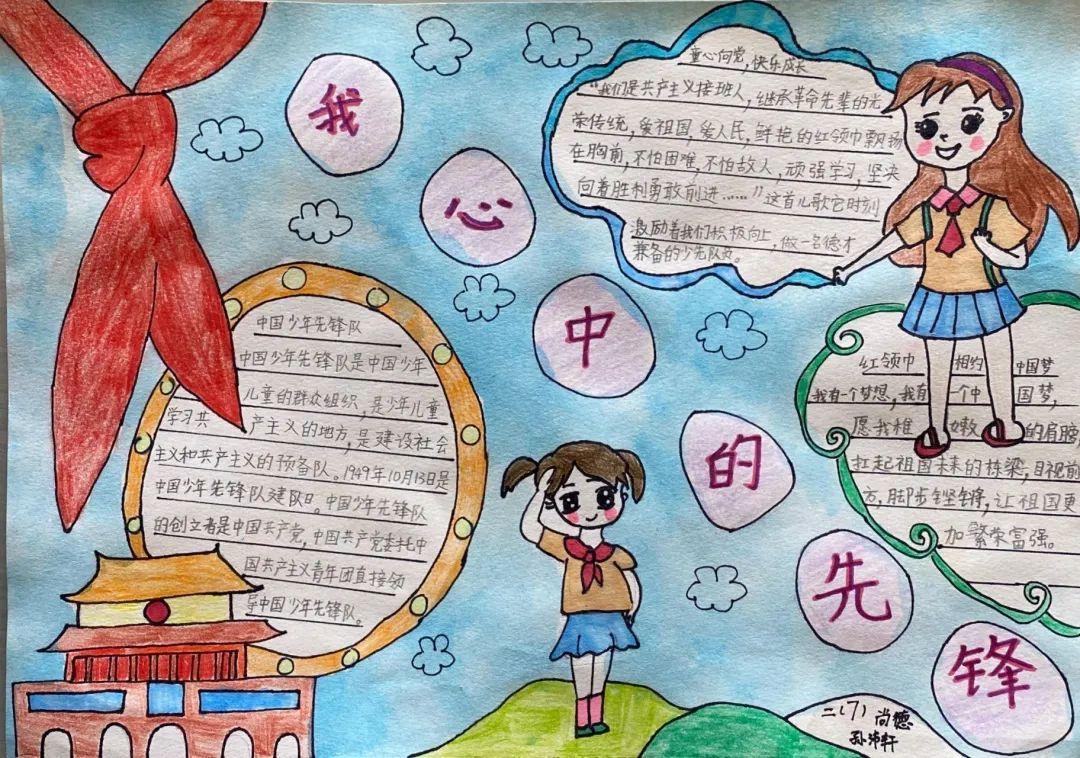 我心中的先锋
童心向党,快乐成长
"我们是共产主义接班人,继承革命先辈的光
荣传统,爱祖国,爱人民,鲜艳的红领巾飘扬
在胸前,不怕困难,不怕敌人,顽强学习,坚决
向着胜利勇敢前进……"这首儿歌它时刻
激励着我们积极向上,做一名德才
兼备的少先队员。
中国少年先锋队
中国少年先锋队是中国少年
儿童的群众组织,是少年儿童
学习共产主义的地方,是建设社会
主义和共产主义的预备队。1949年10月13日是
中国少年先锋队建队日。中国少年先锋队
的创立者是中国共产党,中国共产党委托中
国共产主义青年团直接领
导中国少年先锋队。
红领巾相约中国梦
我有一个梦想,我有一个中国梦,
愿我稚嫩的肩膀
扛起祖国未来的栋梁,目视前
方,脚步铿锵,让祖国更
加繁荣富强。
二(7)尚德
孙 轩